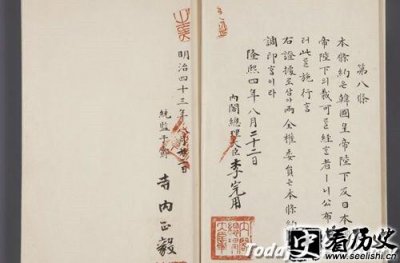 第八條
本條約은韓國皇帝陛下及日本
帝陛下의裁可를經한者ㅣ니公布
此를施行홈
右證據로삼아兩全權委員은本條約
調印홈이라
隆熙四年八月二十二日
內閣總理大臣 李完用
明治四十三年八月廿二日
統監子爵 寺內正毅
Today
看历史
www.seelishi.cn